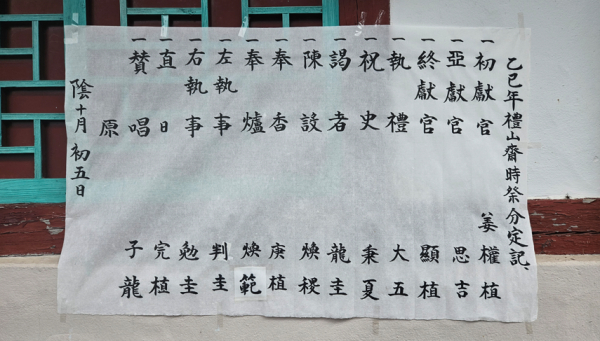 乙巳年禮山齋時祭分定記
一 初獻官 姜權植
一 亞獻官 思吉
一 終獻官 顯植
一 執禮 大五
一 祝史 秉夏
一 謁者 龍圭
一 陳設 煥稷
一 奉香 庚植
一 奉爐 煥範
一 左執事 判圭
一 右執事 勉圭
一 直日 完植
一 賛唱 子龍
原
陰十月初五日